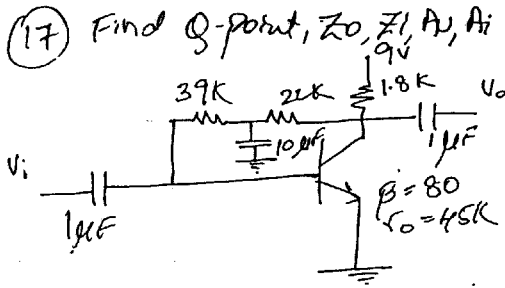 (17) Find Q-point, Zo, Zi, Av, Ai
9V
39K 22K 1.8K Vo
10μF
1μF
Vi
β=80
1μF ro=45K